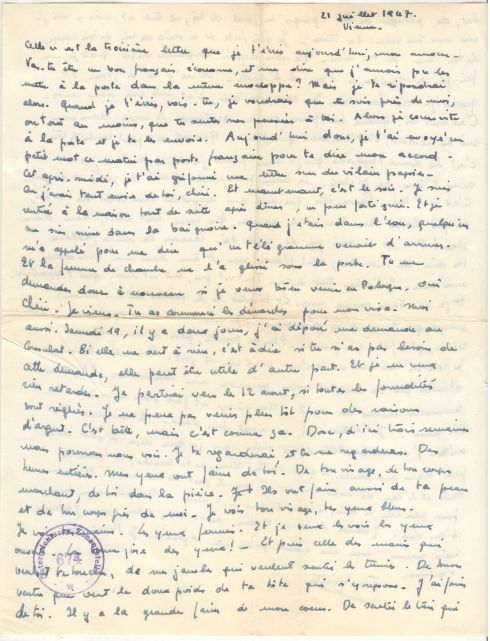 21 juillet 1947.
Vienne.
Celle ci est la troisième lettre que je t'écris aujourd'hui, mon amour.
Vas-tu être un bon français économe, et me dire que j'aurais pu les
mettre à la poste dans la même enveloppe? Mais je te répondrai
alors. Quand je t'écris, vois-tu, je voudrais que tu sois près de moi,
ou tout au moins, que tu sentes mes pensées à toi. Alors je cours vite
à la poste et je te les envoie. Aujourd'hui donc, je t'ai envoyé un
petit mot ce matin par poste française pour te dire mon accord.
Cet après-midi, je t'ai griffonné une lettre sur du vilain papier.
On j'avais tant envie de toi, chéri. Et maintenant, c'est le soir. Je suis
rentrée à la maison tout de suite après dîner un peu fatiguée. Et je
me suis mise dans la baignoire. Quand j'étais dans l'eau, quelqu'un
m'a appelé pour me dire qu'un télégramme venait d'arriver.
Et la femme de chambre me l'a glissé sous la porte. Tu me
demandes donc à nouveau si je veux bien venir en Pologne. Oui
Chéri. Je viens. Tu as commencé les démarches pour mon visa. Moi
aussi. Samedi 19, il y a deux jours, j'ai déposé une demande au
Consulat. Si elle ne sert à rien, c'est à dire si tu n'as pas besoin de
cette demande, elle peut être utile d'autre part. Et je ne veux
rien retarder. Je partirai vers le 12 août, si toutes les formalités
sont réglées. Je ne peux pas venir plus tôt pour des raisons
d'argent. C'est bête, mais c'est comme ça. Donc, d'ici trois semaines
nous pourrons nous voir. Je te regarderai et tu me regarderas. Des
heures entières. Mes yeux ont faim de toi. De ton visage, de ton corps
marchant, de toi dans la pièce. Ils ont faim aussi de ta peau
et de ton corps près de moi. Je vois ton visage, tes yeux bleus.
Je vois mains. Les yeux fermés. Et je veux les voir les yeux
ouverts. des yeux! Et puis celle des mains qui
veulent te toucher, de mes jambes qui veulent sentir les tiennes. De mon
ventre qui veut le doux poids de ta tête qui s'y repose. J'ai faim
de toi. Il y a la grande faim de mon coeur. De sentir le tien qui
674